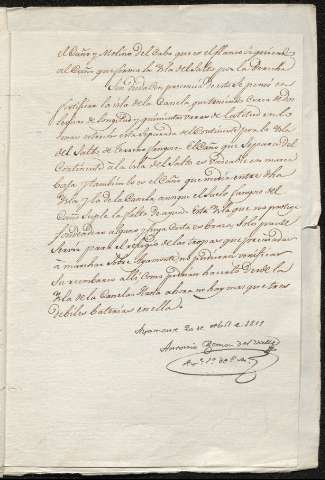 el Caño y Molino del Cabo que es el flanco izquierdo
al Caño que forma la Isla del Salto por la derecha
Sin duda con presencia de esto se pensó en
fortificar la isla de la Canela que teniendo cerca de dos
leguas de longitud y quinientas varas de latitud en lo
mas estrecho esta separada del Continente por la Isla
del Salto
El Caño que separa del
Continente a la isla del Salto es vadeable en marea
baja y tambien lo es el Caño que media entre dha
Isla y la de la Canela, aunque el suelo fangoso del
Caño suple la falta de agua. Esta Isla que no protege
fondeadero alguno y cuya costa es brava, solo puede
servir para el refugio de las tropas que precisadas
a marchar sobre Ayamonte, no pudieran verificar
su reembarco alli, como podrian hacerlo desde la
Isla de la Canela. Hasta ahora no hay mas que tres
debiles baterias en ella.
Ayamonte 20 de Abril de 1811
Antonio Ramon del Valle